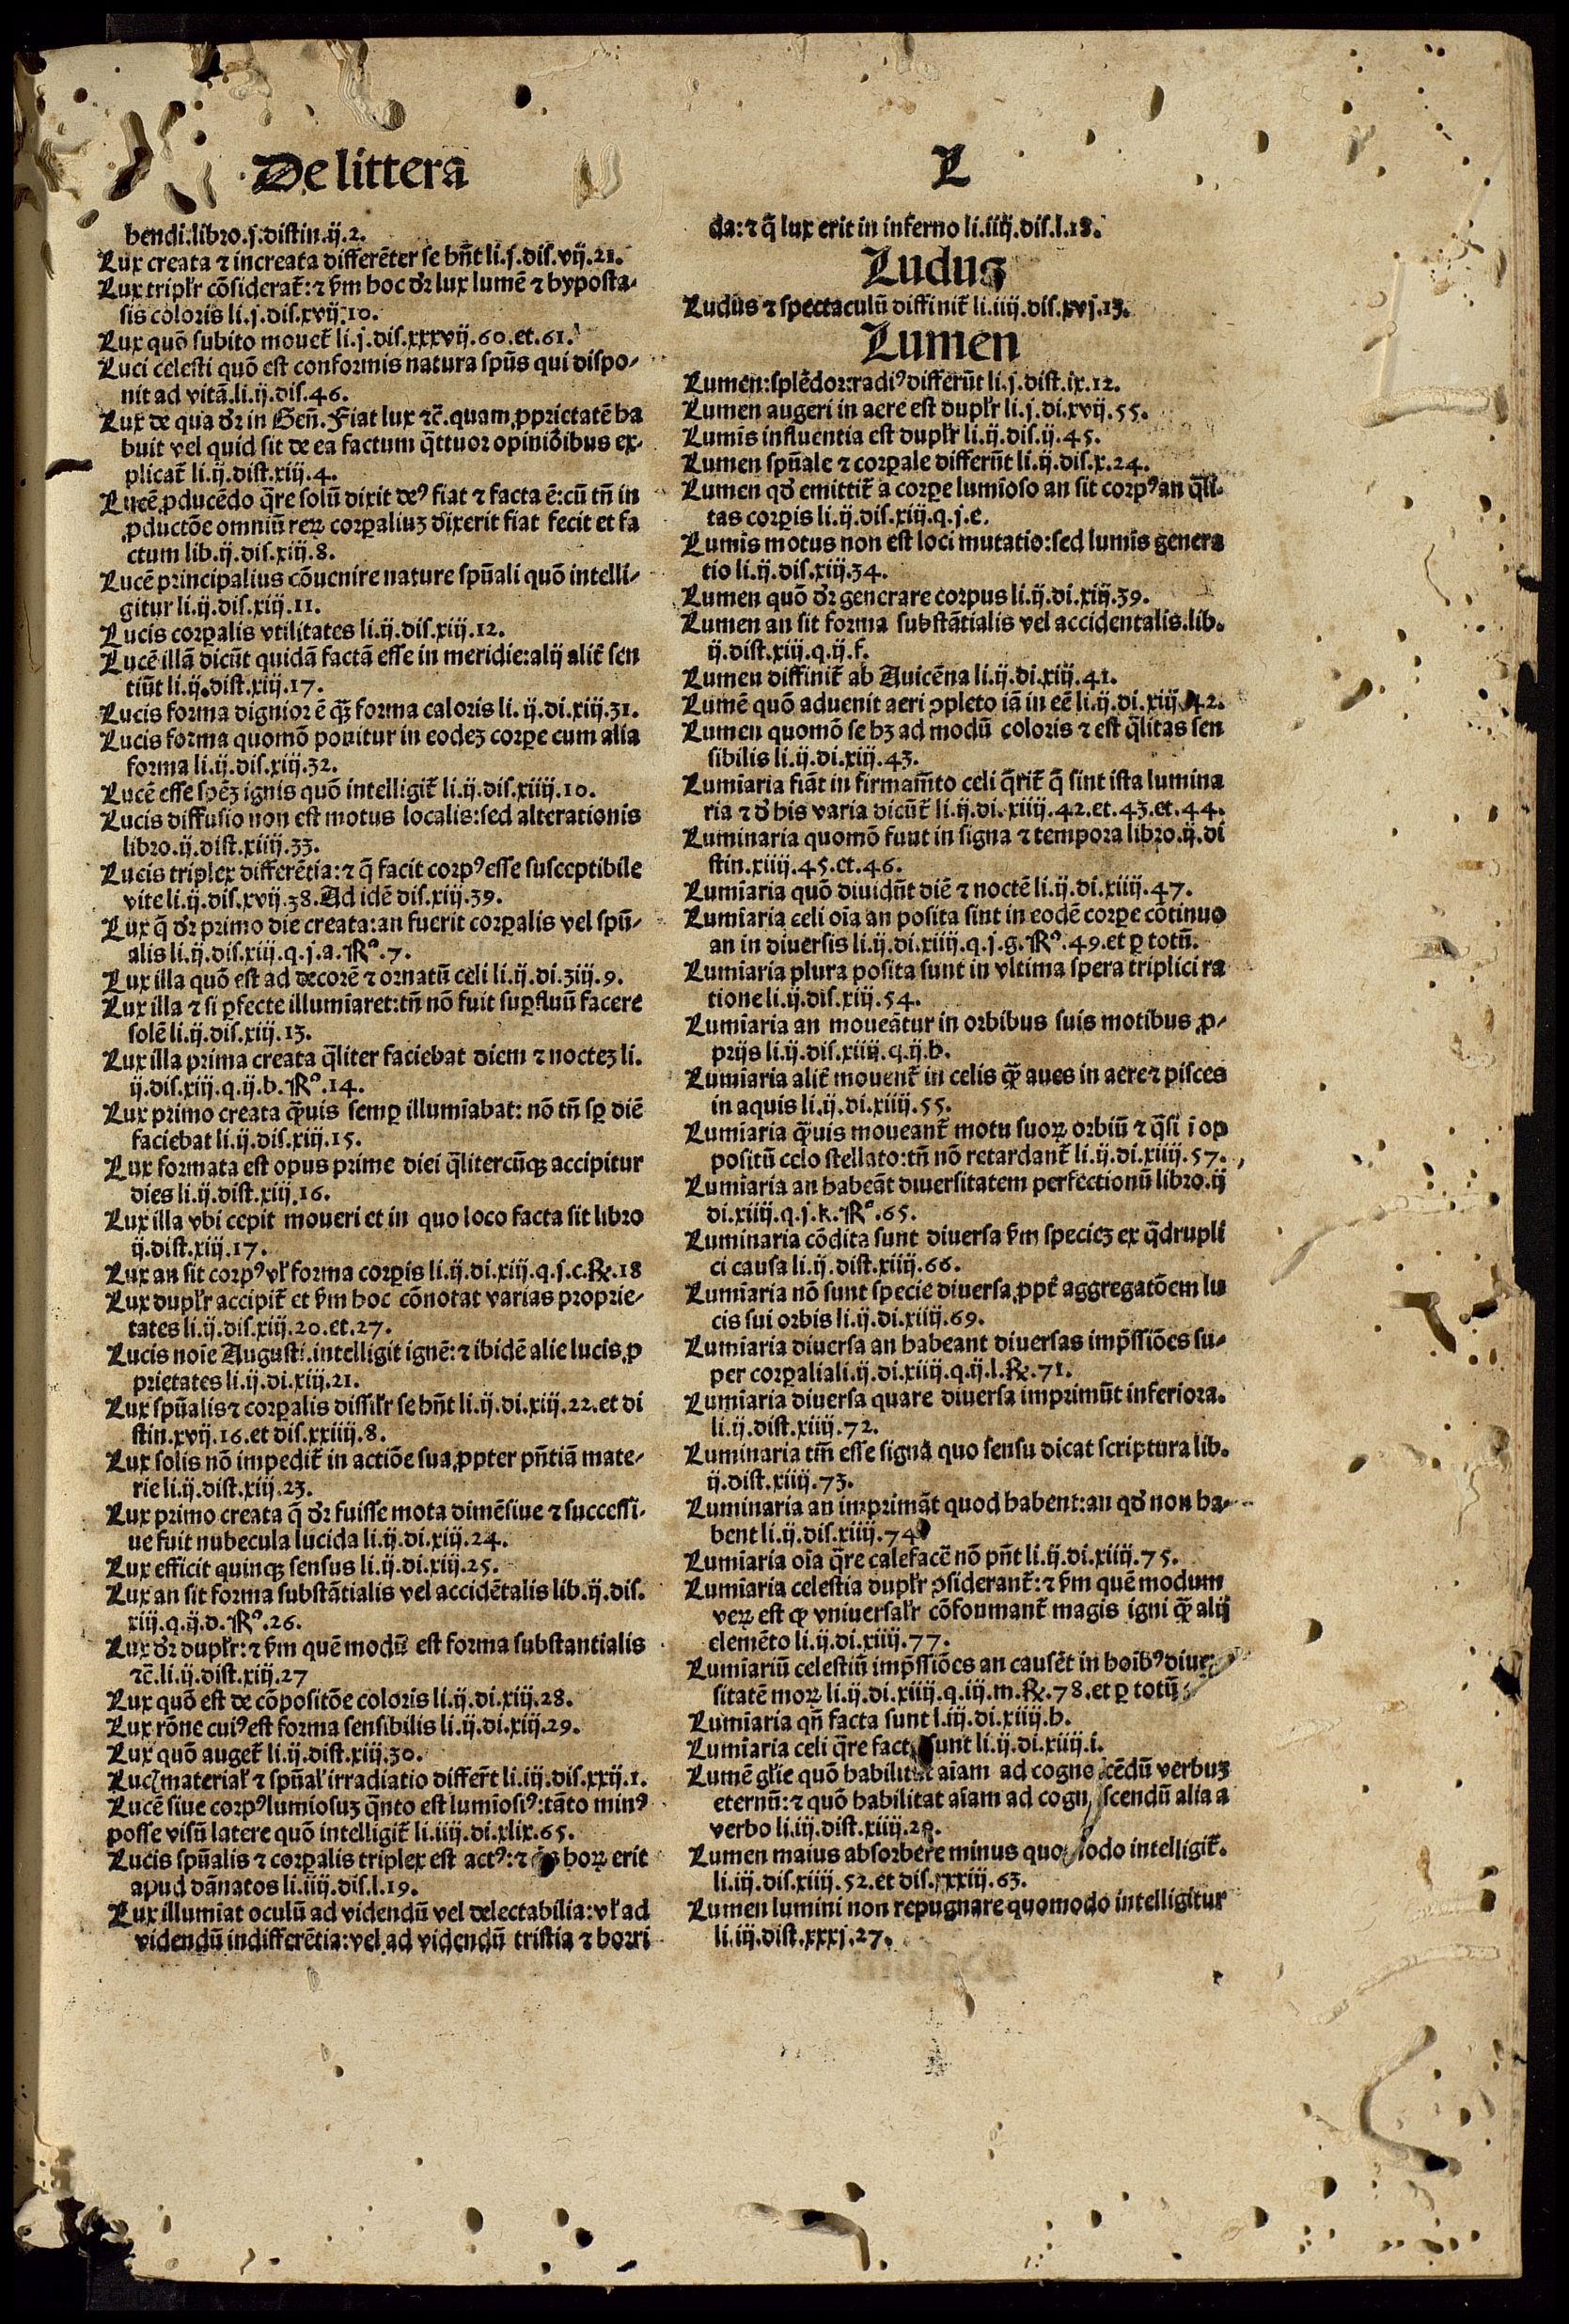 De littera
L
bendi.libro.j.distin.ij.2.
Lux creata ⁊ increata differēter se hn̄t li.j.dis.vij.21.
Lux triplr̄ cōsiderat᷑: ⁊ ẜm hoc dr̄ lux lumē ⁊ hyposta-
sis coloris li.j.dis.xvij.10.
Lux quō subito mouet᷑ li.j.dis.xxxvij.60.et.61.
Luci celesti quō est conformis natura spūs qui dispo-
nit ad vitā.li.ij.dis.46.
Lux de qua dr̄ in Gen̄. Fiat lux ⁊c̄.quam ꝓprietatē ha
buit vel quid sit de ea factum q̄ttuor opiniōibus ex-
plicat᷑ li.ij.dist.xiij.4.
Lucē ꝓducēdo q̄re solū dixit deꝰ fiat ⁊ facta ē:cū tn̄ in
ꝓductōe omniū reꝝ corꝑaliuꝫ dixerit fiat fecit et fa
ctum lib.ij.dis.xiij.8.
Lucē principalius cōuenire nature spūali quō intelli-
gitur li.ij.dis.xiij.11.
Lucis corꝑalis vtilitates li.ij.dis.xiij.12.
Lucē illā dicūt quidā factā esse in meridie:alij alit᷑ sen
tiūt li.ij.dist.xiij.17.
Lucis forma dignior ē q̄ꝫ forma caloris li. ij.di.xiij.31.
Lucis forma quomō ponitur in eodeꝫ corꝑe cum alia
forma li.ij.dis.xiij.32.
Lucē esse spēꝫ ignis quō intelligit᷑ li.ij.dis.xiiij.10.
Lucis diffusio non est motus localis:sed alterationis
libro.ij.dist.xiij.33.
Lucis triplex differētia:⁊ q̄ facit corpꝰ esse susceptibile
vite li.ij.dis.xvij.38.Ad idē dis.xiij.39.
Lux q̄ dr̄ primo die creata:an fuerit corꝑalis vel spū-
alis li.ij.dis.xiij.q.j.a.Rº.7.
Lux illa quō est ad decorē ⁊ ornatū celi li.ij.di.xiij.9.
Lux illa ⁊ si ꝑfecte illumīaret:tn̄ nō fuit suꝑfluū facere
solē li.ij.dis.xiij.13.
Lux illa prima creata q̄liter faciebat diem ⁊ nocteꝫ li.
ij.dis.xiij.q.ij.b.Rº.14.
Lux primo creata q̄ꝫuis semꝑ illumīabat: nō tn̄ sꝑ diē
faciebat li.ij.dis.xiij.15.
Lux formata est opus prime diei q̄litercūqꝫ accipitur
dies li.ij.dist.xiij.16.
Lux illa vbi cepit moueri et in quo loco facta sit libro
ij.dist.xiij.17.
Lux an sit corpꝰ vl̄ forma corꝑis li.ij.di.xiij.q.j.c.℞.18
Lux duplr̄ accipit᷑ et ẜm hoc cōnotat varias proprie-
tates li.ij.dis.xiij.20.et.27.
Lucis noīe Augusti.intelligit ignē:⁊ ibidē alie lucis ꝓ
prietates li.ij.di.xiij.21.
Lux spūalis ⁊ corꝑalis dissilr̄ se hn̄t li.ij.di.xiij.22.et di
stin.xvij.16.et dis.xxiiij.8.
Lux solis nō impedit᷑ in actiōe sua ꝓpter pn̄tiā mate-
rie li.ij.dist.xiij.23.
Lux primo creata q̄ dr̄ fuisse mota dimēsiue ⁊ successi-
ue fuit nubecula lucida li.ij.di.xiij.24.
Lux efficit quinqꝫ sensus li.ij.di.xiij.25.
Lux an sit forma substātialis vel accidētalis lib.ij.dis.
xiij.q.ij.d.Rº.26.
Lux dr̄ duplr̄:⁊ ẜm quē modū est forma substantialis
⁊c̄.li.ij.dist.xiij.27
Lux quō est de cōpositōe coloris li.ij.di.xiij.28.
Lux rōne cuiꝰ est forma sensibilis li.ij.di.xiij.29.
Lux quō auget᷑ li.ij.dist.xiij.30.
Lucis material᷑ ⁊ spūal᷑ irradiatio differt᷑ li.iij.dis.xxij.1.
Lucē siue corpꝰ lumiosuꝫ q̄nto est lumīosiꝰ:tāto minꝰ
posse visū latere quō intelligit᷑ li.iiij.di.xlix.65.
Lucis spūalis ⁊ corꝑalis triplex est actꝰ:⁊ hoꝝ erit
apud dānatos li.iiij.dis.l.19.
Lux illumiat oculū ad videndū vel delectabilia:vl̄ ad
videndū indifferētia:vel ad videndū tristia ⁊ horri
da:⁊ q̄ lux erit in inferno li.iiij.dis.l.18.
Ludus
Ludus ⁊ spectaculū diffinit᷑ li.iiij.dis.xvj.13.
Lumen
Lumen:splēdor:radiꝰ differūt li.j.dist.ix.12.
Lumen augeri in aere est duplr̄ li.j.di.xvij.55.
Lumīs influentia est duplr̄ li.ij.dis.ij.45.
Lumen spūale ⁊ corꝑale differūt li.ij.dis.x.24.
Lumen qd̄ emittit᷑ a corꝑe lumīoso an sit corpꝰ an q̄li-
tas corꝑis li.ij.dis.xiij.q.j.e.
Lumīs motus non est loci mutatio:sed lumīs genera
tio li.ij.dis.xiij.34.
Lumen quō dr̄ generare corpus li.ij.di.xiij.39.
Lumen an sit forma substātialis vel accidentalis.lib.
ij.dist.xiij.q.ij.f.
Lumen diffinit᷑ ab Auicēna li.ij.di.xiij.41.
Lumē quō aduenit aeri ꝯpleto iā in eē li.ij.di.xiij.42.
Lumen quomō se hꝫ ad modū coloris ⁊ est q̄litas sen
sibilis li.ij.di.xiij.43.
Lumīaria fiāt in firmam̄to celi q̄rit᷑ q̄ sint ista lumina
ria ⁊ d̄ his varia dicūt᷑ li.ij.di.xiiij.42.et.43.et.44.
Luminaria quomō sunt in signa ⁊ tempora libro.ij.di
stin.xiiij.45.et.46.
Lumīaria quō diuidūt diē ⁊ noctē li.ij.di.xiiij.47.
Lumīaria celi oīa an posita sint in eodē corꝑe cōtinuo
an in diuersis li.ij.di.xiiij.q.j.g.Rº.49.et ꝑ totū.
Lumīaria plura posita sunt in vltima spera triplici ra
tione li.ij.dis.xiij.54.
Lumīaria an moueātur in orbibus suis motibus ꝓ-
prijs li.ij.dis.xiiij.q.ij.h.
Lumīaria alit᷑ mouent᷑ in celis q̄ꝫ aues in aere ⁊ pisces
in aquis li.ij.di.xiiij.55.
Lumīaria q̄ꝫuis moueant᷑ motu suoꝝ orbiū ⁊ q̄si ī op
positū celo stellato:tn̄ nō retardant᷑ li.ij.di.xiiij.57.
Lumīaria an habeāt diuersitatem perfectionū libro.ij
di.xiiij.q.j.k.Rº.65.
Luminaria cōdita sunt diuersa ẜm specieꝫ ex q̄drupli
ci causa li.ij.dist.xiiij.66.
Lumīaria nō sunt specie diuersa ꝓpt᷑ aggregatōem lu
cis sui orbis li.ij.di.xiiij.69.
Lumīaria diuersa an habeant diuersas imp̄ssiōes su-
per corꝑalia li.ij.di.xiiij.q.ij.l.℞.71.
Lumīaria diuersa quare diuersa imprimūt inferiora.
li.ij.dist.xiiij.72.
Luminaria tm̄ esse signa quo sensu dicat scriptura lib.
ij.dist.xiiij.73.
Luminaria an imprimāt quod habent:an qd̄ non ha-
bent li.ij.dis.xiiij.74
Lumīaria oīa q̄re calefacē nō pn̄t li.ij.di.xiiij.75.
Lumīaria celestia duplr̄ ꝯsiderant᷑:⁊ ẜm quē modum
veꝝ est ꝙ vniuersalr̄ cōfoumant᷑ magis igni q̄ꝫ alij
elemēto li.ij.di.xiiij.77.
Lumīariū celestiū imp̄ssiōes an causēt in hoībꝰ diuer
sitatē moꝝ li.ij.di.xiiij.q.iij.m.℞.78.et ꝑ totū
Lumīaria qn̄ facta sunt l.iij.di.xiiij.b.
Lumīaria celi q̄re fact sunt li.ij.di.xiiij.i.
Lumē gl̄ie quō habilitat aīam ad cognoscēdū verbuꝫ
eternū:⁊ quō habilitat aīam ad cognoscendū alia a
verbo li.iij.dist.xiiij.29.
Lumen maius absorbere minus quomodo intelligit᷑.
li.iij.dis.xiiij.52.et dis.xxxiij.63.
Lumen lumini non repugnare quomodo intelligitur
li.iij.dist.xxxj.27.